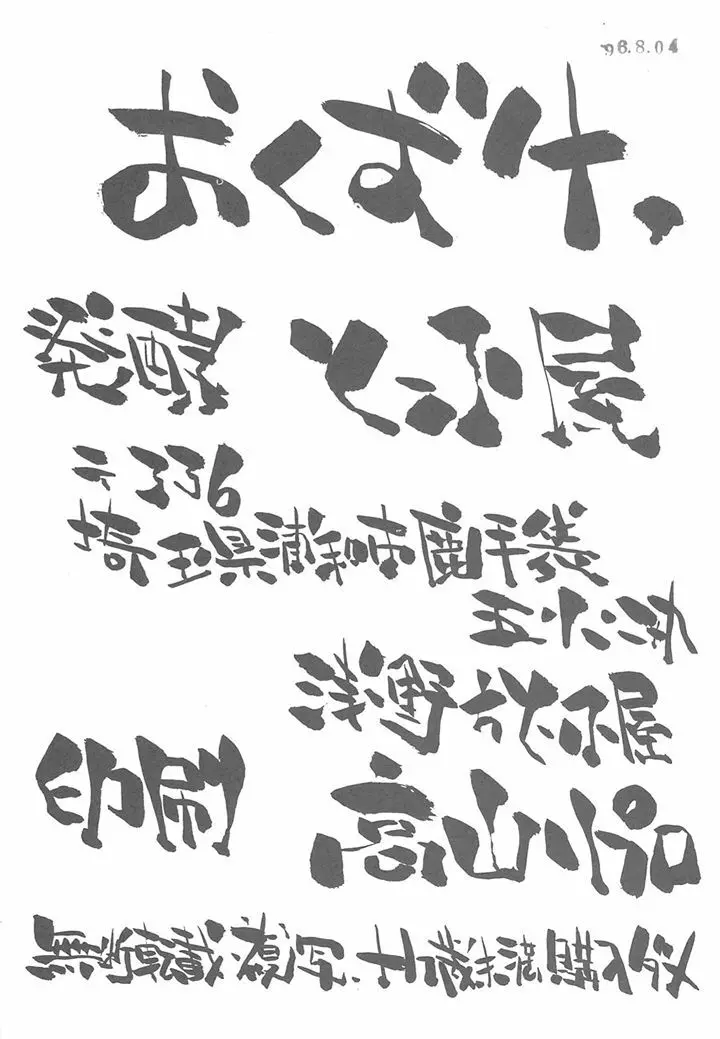 96.8.04
おくずけ、
発酵 とうふ屋
〒336
埼玉県浦和市鹿手袋
五
浅野方とうふ屋
印刷 高山プロ
無断転載、複写、十八歳未満購入ダメ